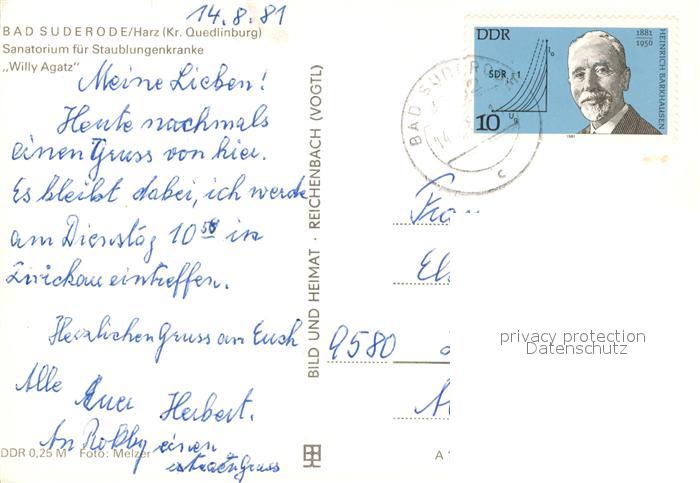 14.8.81
BAD SUDERODE/Harz (Kr. Quedlinburg)
Sanatorium für Staublungenkranke
„Willy Agatz“
Meine Lieben!
Heute nochmals
einen Gruss von hier.
Es bleibt dabei, ich werde
am Dienstag 10⁵⁸ in
Zwickau eintreffen.
Herzlichen Gruss an Euch
Alle
Euer Herbert.
An Robby einen
extraen Gruss
DDR 0,25 M Foto: Melzer
BILD UND HEIMAT · REICHENBACH (VOGTL)
DDR
1881
1956
HEINRICH BARKHAUSEN
10
1981
BAD SUDERODE
14
c
Frau
El
9580
privacy protection
Datenschutz
A